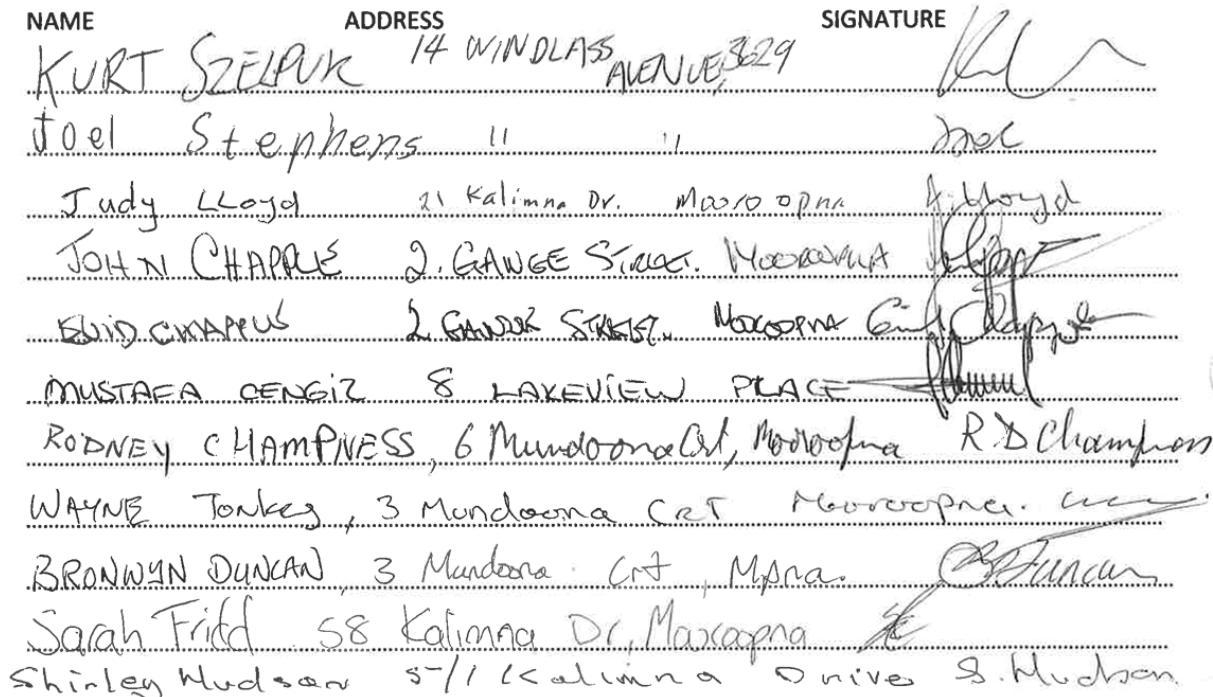 NAME ADDRESS SIGNATURE
KURT SZELPUK 14 WINDLASS AVENUE, 3629
Joel Stephens " " Joel
Judy LLoyd 21 Kalimna Dr. Mooroopna A. Lloyd
JOHN CHAPPLE 2. GANGE STREET. MOOROOPNA
CHAPPLE 2 STREET. MOOROOPNA Chapple
MUSTAFA CENGIZ 8 LAKEVIEW PLACE
RODNEY CHAMPNESS, 6 Mundoona Crt, Mooroopna R D Champness
WAYNE Tonkes, 3 Mundoona CRT Mooroopna.
BRONWYN DUNCAN 3 Mundoona. Crt, Mpna. B Duncan
Sarah Fridd 58 Kalimna Dr, Mooroopna
Shirley Hudson 5-/1 Kalimna Drive S. Hudson